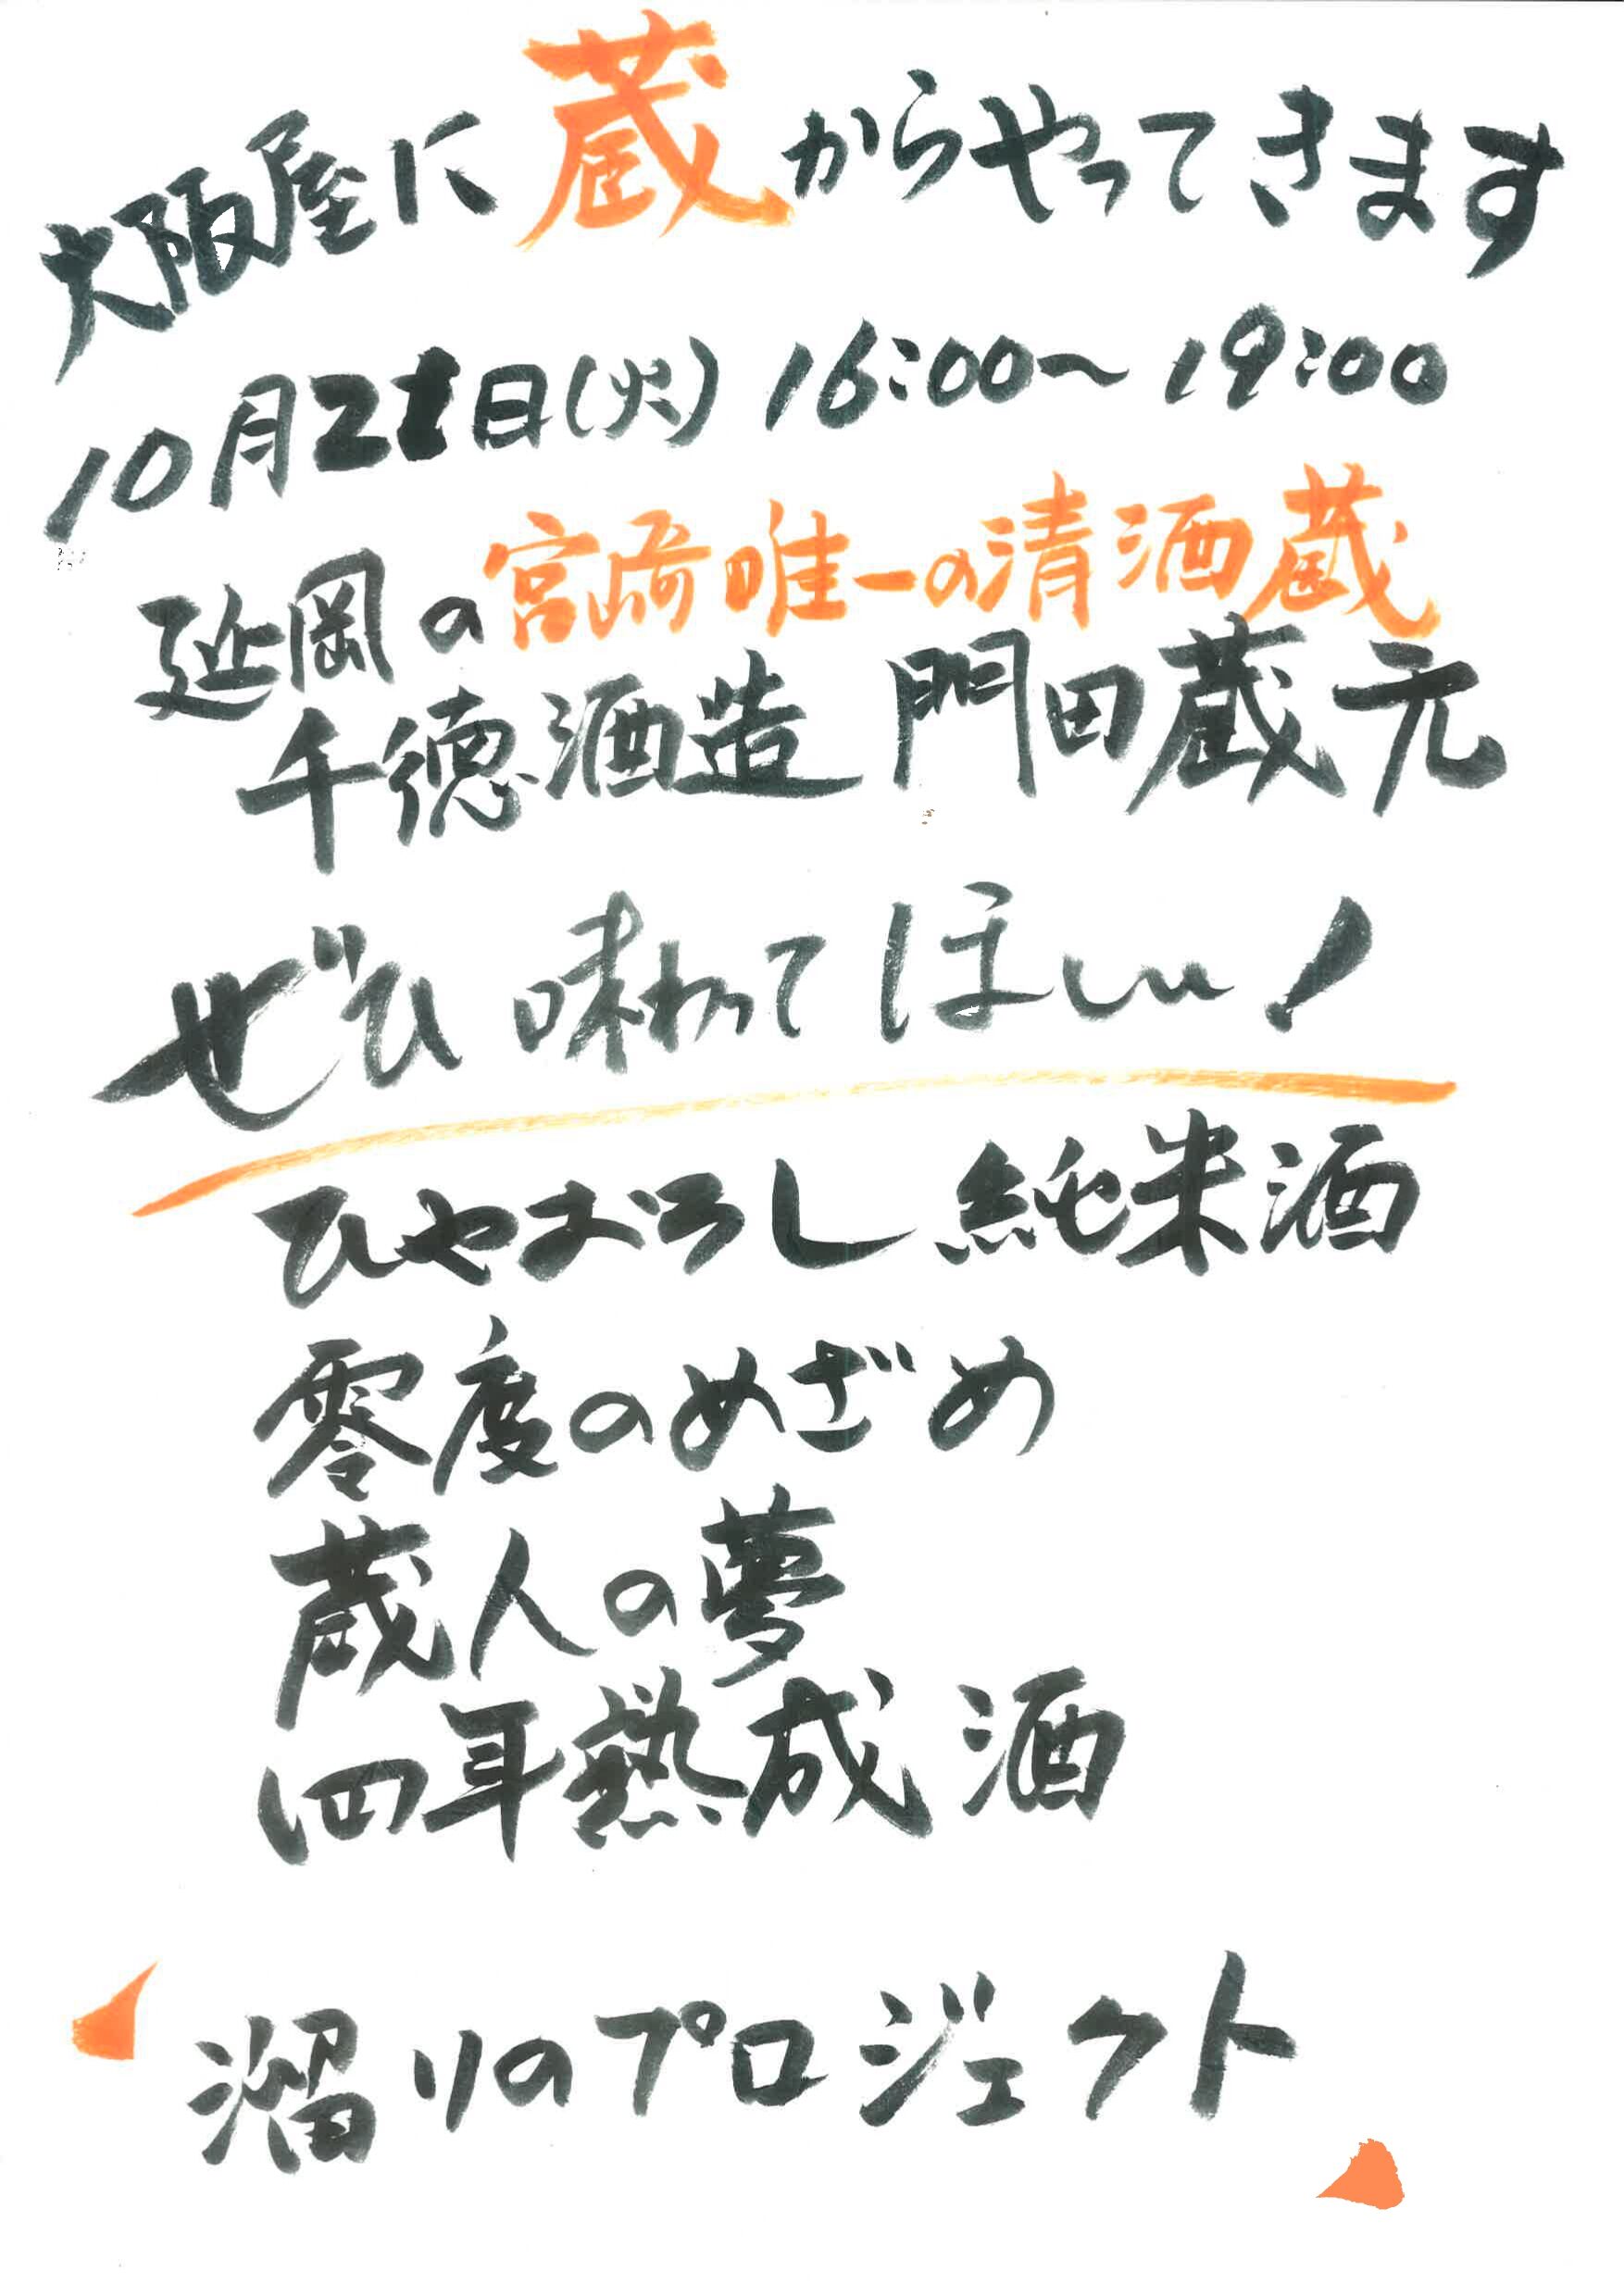 大阪屋に蔵からやってきます
10月21日(火) 16:00～19:00
延岡の宮崎唯一の清酒蔵
千徳酒造 門田蔵元
ぜひ味わってほしい!
ひやおろし純米酒
零度のめざめ
蔵人の夢
四年熟成酒
溜りのプロジェクト